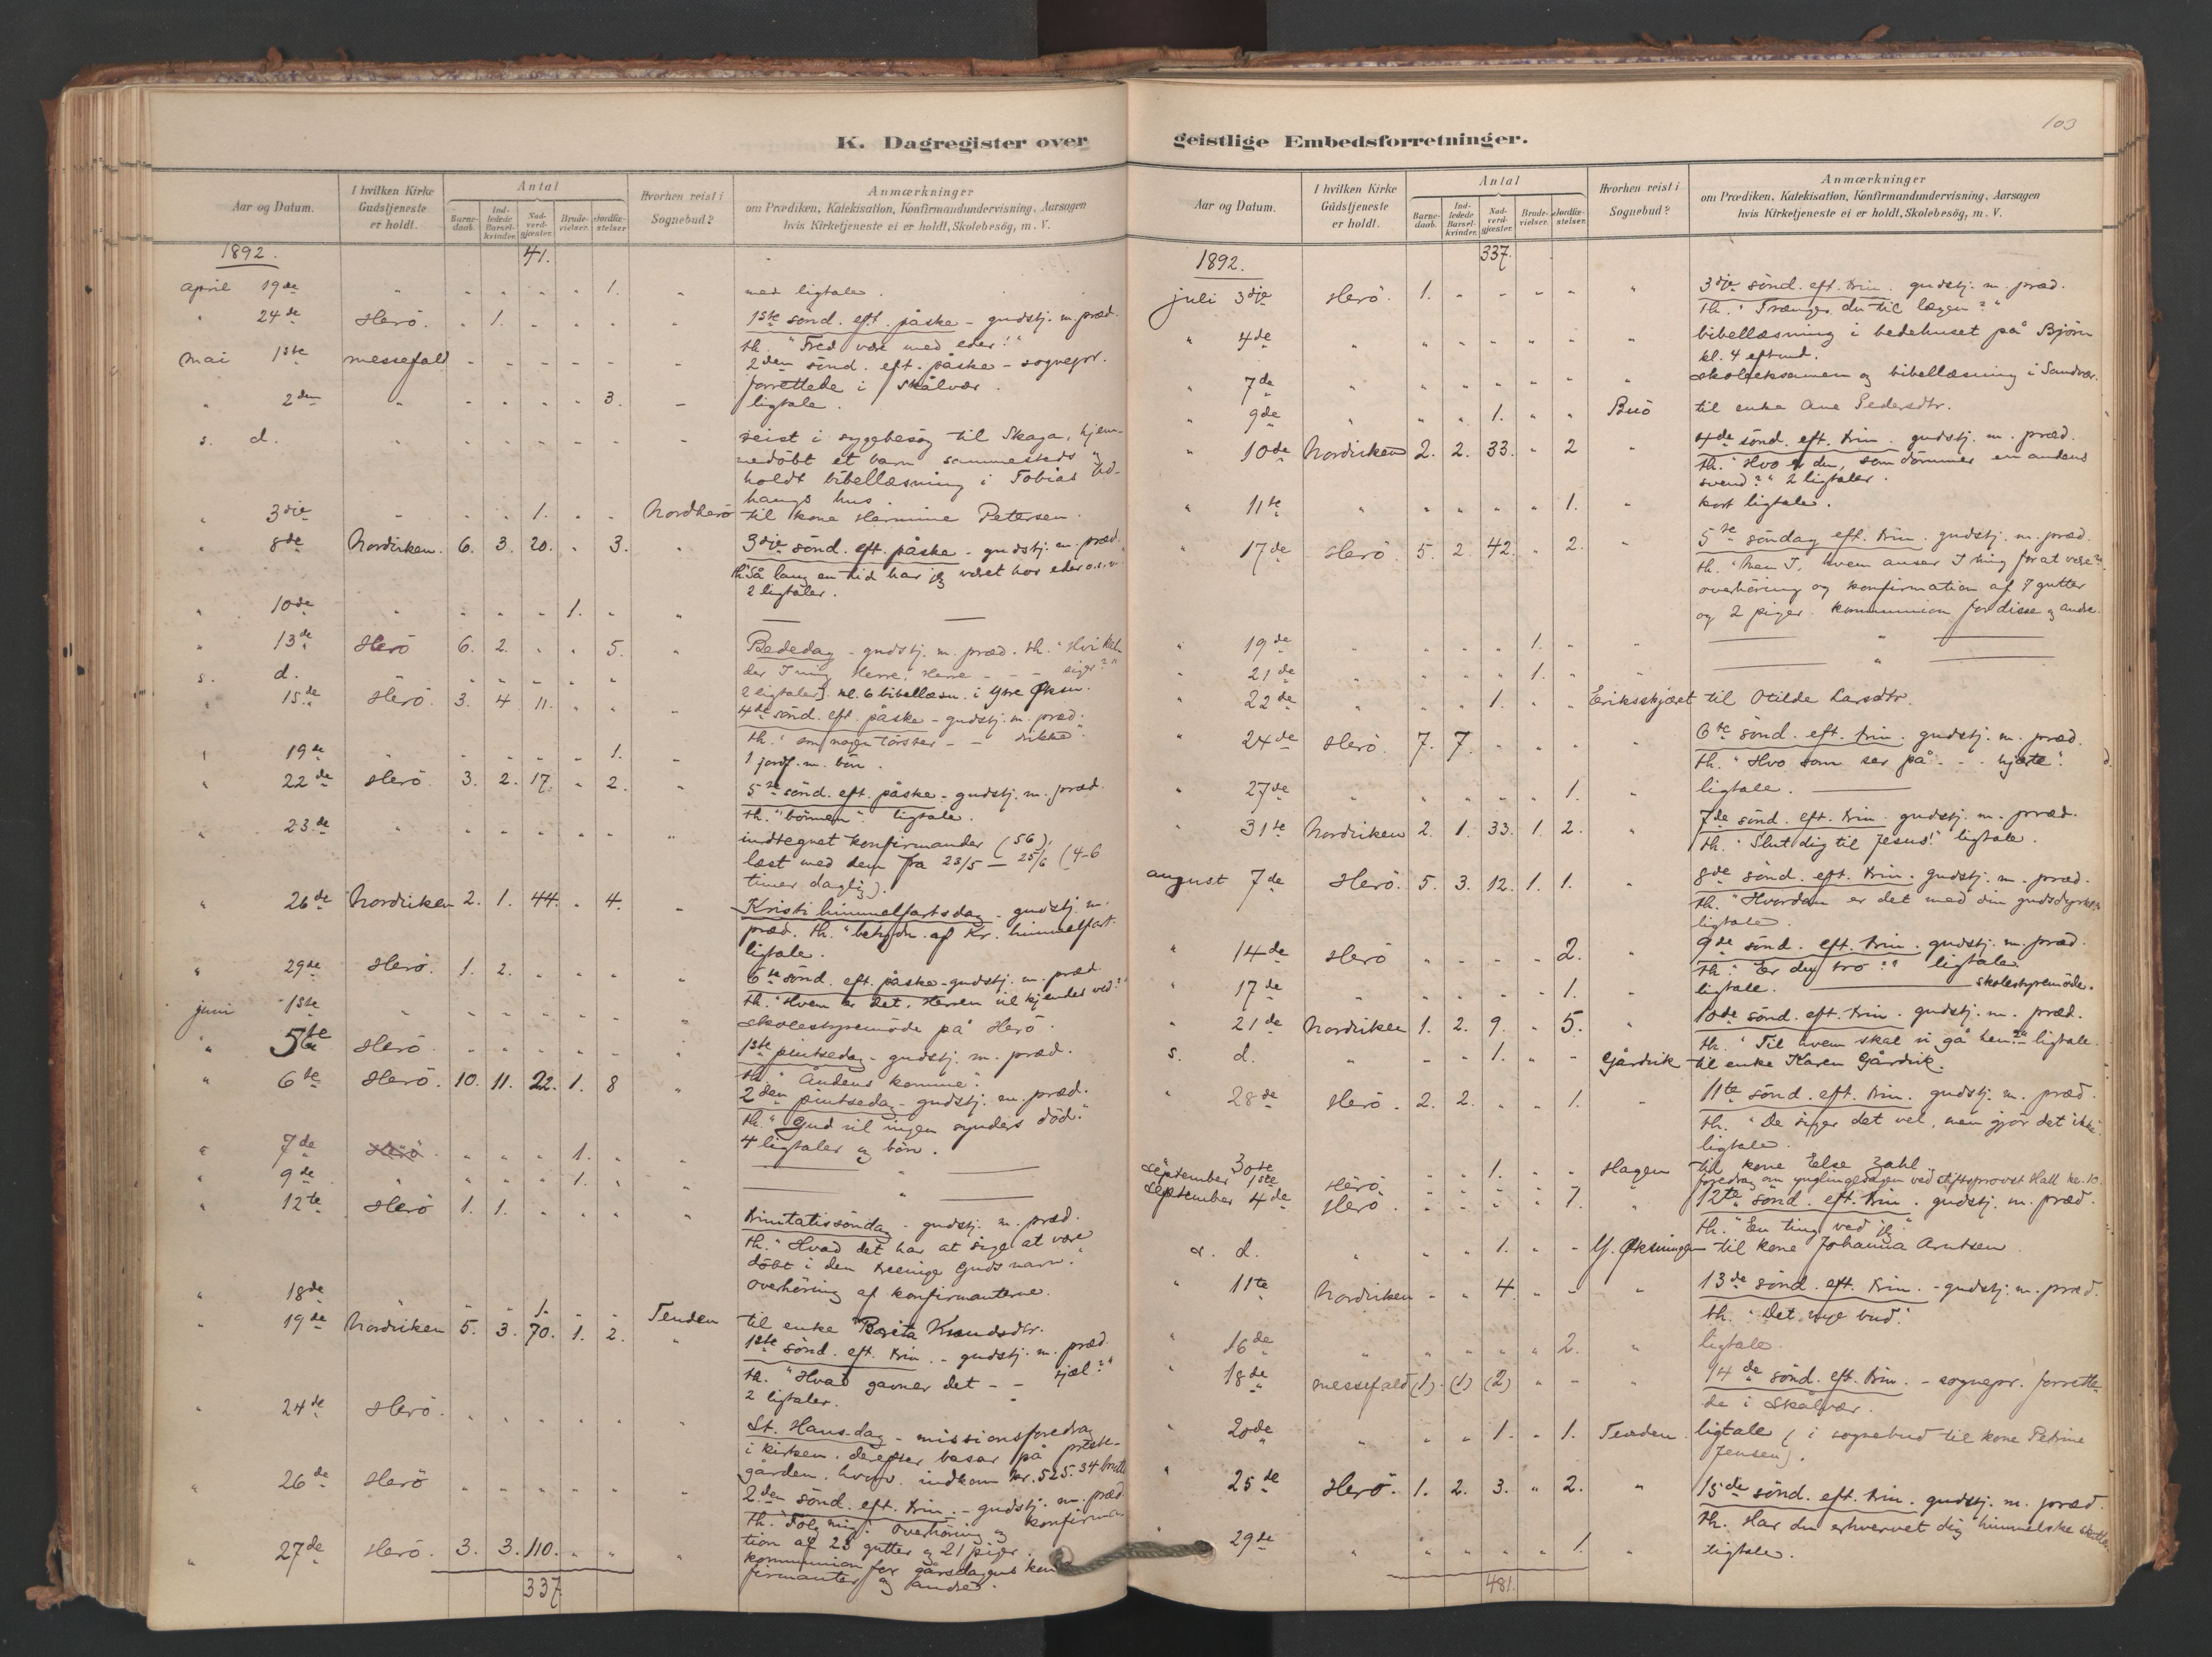 103
K. Dagregister over
Aar og Datum.
I hvilken Kirke Gudstjeneste er holdt.
Antal
Barne-daab.
Ind-ledede Barsel-kvinder.
Nad-verd-gjæster.
Brude-vielser.
Jordfæ-stelser.
Hvorhen reist i Sognebud?
Anmærkninger
om Prædiken, Katekisation, Konfirmandundervisning, Aarsagen
hvis Kirketjeneste ei er holdt, Skolebesög, m. V.
1892. 41.
april 19de " " " " " " 1. " med ligtale.
" 24de Herö. " 1. " " " " 1ste sönd. eft. påske - gudstj. m. præd.
th. "Fred være med eder!"
mai 1ste messefald - - - - - - 2den sönd. eft. påske - sognepr.
forrettede i Skålvær.
" 2den " - - - - 3. - ligtale.
s. d. " - - - - - - reist i sygebesög til Skaga, hjem-
medöbt et barn sammesteds og
holdt bibellæsning i Tobias Ud-
haugs hus.
" 3die " - - 1. - - Nordherö til kone Hermine Petersen.
" 8de Nordviken. 6. 3. 20. " 3. " 3die sönd. eft. påske - gudstj. m. præd.
th. "Så lang en tid har jeg været hos eder o.s.v.
2 ligtaler.
" 10de " - - - 1. " "
" 13de Herö 6. 2. " " 5. " Bededag - gudstj. m. præd. th. "Hvi kal-
der I mig Herre, Herre - - - siger?"
s. d. " " " " " " 2 ligtaler. kl. 6 bibellæsn. i Ytre Øksn.
" 15de Herö. 3. 4 11. " " " 4de sönd. eft. påske - gudstj. m. præd.
th. "om nogen törster - - drikke".
" 19de " " " " " 1. " 1 jordf. m. bön.
" 22de Herö 3. 2. 17. " 2. " 5te sönd. eft. påske - gudstj. m. præd.
th. "bönnen". ligtale.
" 23de " " " " " " " indtegnet konfirmander (56),
læst med dem fra 23/5 - 25/6 (4-6
timer daglig).
" 26de Nordviken 2. 1. 44. " 4. " Kristi himmelfartsdag - gudstj. m.
præd. th. "betydn. af Kr. himmelfart.
ligtale.
" 29de Herö. 1. 2. " " " " 6te sönd. eft. påske - gudstj. m. præd.
th. "Hvem er det, Herren vil kjendes ved?"
juni 1ste " " " " " " " skolestyremöde på Herö.
" 5te Herö " " " " " " 1ste pintsedag - gudstj. m. præd.
th. "Åndens komme".
" 6te Herö. 10. 11. 22. 1. 8 " 2den pintsedag - gudstj. m. præd.
th. "Gud vil ingen synders död."
4 ligtaler og bön.
" 7de Herö " " " 1. " "
" 9de " " " " 1. " "
" 12te Herö 1. 1. " " " " Trinitatissöndag - gudstj. m. præd.
th. "Hvad det har at sige at være
döbt i den treenige Guds navn."
overhöring af konfirmanterne.
" 18de " " " 1. - - Tenden til enke Berita Knudsdtr.
" 19de Nordviken 5. 3. 70. 1. 2. " 1ste sönd. eft. trin. - gudstj. m. præd.
th. "Hvad gavner det - - sjæl?"
2 ligtaler.
" 24de Herö. " " " " " " St. Hans-dag - missionsforedrag
i kirken, derefter basar på preste-
gården, hvorv. indkom kr. 525.34 brutto
" 26de Herö " " " " " " 2den sönd. eft. trin. - gudstj. m. præd.
th. "Fölg mig". overhöring og konfirma-
tion af 23 gutter og 21 piger.
" 27de Herö. 3. 3. 110. " " " kommunion for gårsdagens kon-
firmanter og andre.
337.
geistlige Embedsforretninger.
Aar og Datum.
I hvilken Kirke Gudstjeneste er holdt.
Antal
Barne-daab.
Ind-ledede Barsel-kvinder.
Nad-verd-gjæster.
Brude-vielser.
Jordfæ-stelser.
Hvorhen reist i Sognebud?
Anmærkninger
om Prædiken, Katekisation, Konfirmandundervisning, Aarsagen
hvis Kirketjeneste ei er holdt, Skolebesög, m. V.
1892. 337.
juli 3dje Herö. 1. - - - - " 3dje sönd. eft. trin. gudstj. m. præd.
th. "Trænger du til lægen?"
" 4de " " " " " " " bibellæsning i bedehuset på Bjørn
kl. 4 eftmd.
" 7de " " " " " " " skoleeksamen og bibellæsning i Sandvær.
" 9de " " " 1. " " Buö til enke Ane Pedersdtr.
" 10de Nordviken 2. 2. 33. " 2 " 4de sönd. eft. trin. gudstj. m. præd.
th. "Hvo er du, som dömmer en andens
svend?" 2 ligtaler.
" 11te " " " " " 1. " kort ligtale.
" 17de Herö. 5. 2. 42. " 2. " 5te söndag eft. trin. gudstj. m. præd.
th. "Men I, hvem anser I mig for at være?"
overhöring og konfirmation af 7 gutter
og 2 piger. kommunion for disse og andre.
" 19de " " " " 1. " " "
" 21de " " " " 1. " " "
" 22de " " " 1. " " Eriksskjæret til Otilde Larsdtr.
" 24de Herö. 7. 7. " " " " 6te sönd. eft. trin. gudstj. m. præd.
th. "Hvo som ser på - - - hjerte".
" 27de " " " " " 1. " ligtale.
" 31te Nordviken 2. 1. 33. 1. 2. " 7de sönd. eft. trin. gudstj. m. præd.
th. "Slut dig til Jesus!" ligtale.
august 7de Herö. 5. 3. 12. 1. 1. " 8de sönd. eft. trin. gudstj. m. præd.
th. "Hvordan er det med din gudsdyrkelse
ligtale.
" 14de Herö " " " " 2. " 9de sönd. eft. trin. gudstj. m. præd.
th. "Er du tro?" ligtale
" 17de " " " " " 1. " ligtale. skolestyremöde.
" 21de Nordviken 1. 2. 9. " 5. " 10de sönd. eft. trin. gudstj. m. præd.
th. "Til hvem skal vi gå hen?" ligtale.
s. d. " " " 1. " - Gårdvik til enke Karen Gårdvik.
" 28de Herö. 2. 2. " " 1. " 11te sönd. eft. trin. gudstj. m. præd.
th. "De siger det vel, men gjör det ikke".
ligtale.
" 30te " " 1. " " Hagen til kone Else Zahl.
september 1ste Herö " " " " " foredrag om ynglingesagen ved stiftsprovst Hall kl. 10.
september 4de Herö. " " " " 1. " 12te sönd. eft. trin. gudstj. m. præd.
th. "En ting ved jeg".
s. d. " " " 1. " - Y. Øksningen til kone Johanna Arntsen
" 11te Nordviken - " 4. " " " 13de sönd. eft. trin. - gudstj. m. præd.
th. "Det nye bud."
" 16de " " " " " 2. " ligtale.
" 18de messefald (1). (1) (2) " - " 14de sönd. eft. trin. - sognepr. forrette-
de i Skålvær.
" 20de " " " 1. " 1. Tenden ligtale (i sognebud til kone Petrine
Jensen).
" 25de Herö. 1. 2. 3. " 2. " 15de sönd. eft. trin. gudstj. m. præd.
th. Har du erhvervet dig himmelske skatte.
" 29de " " " " " 1. " ligtale.
481.